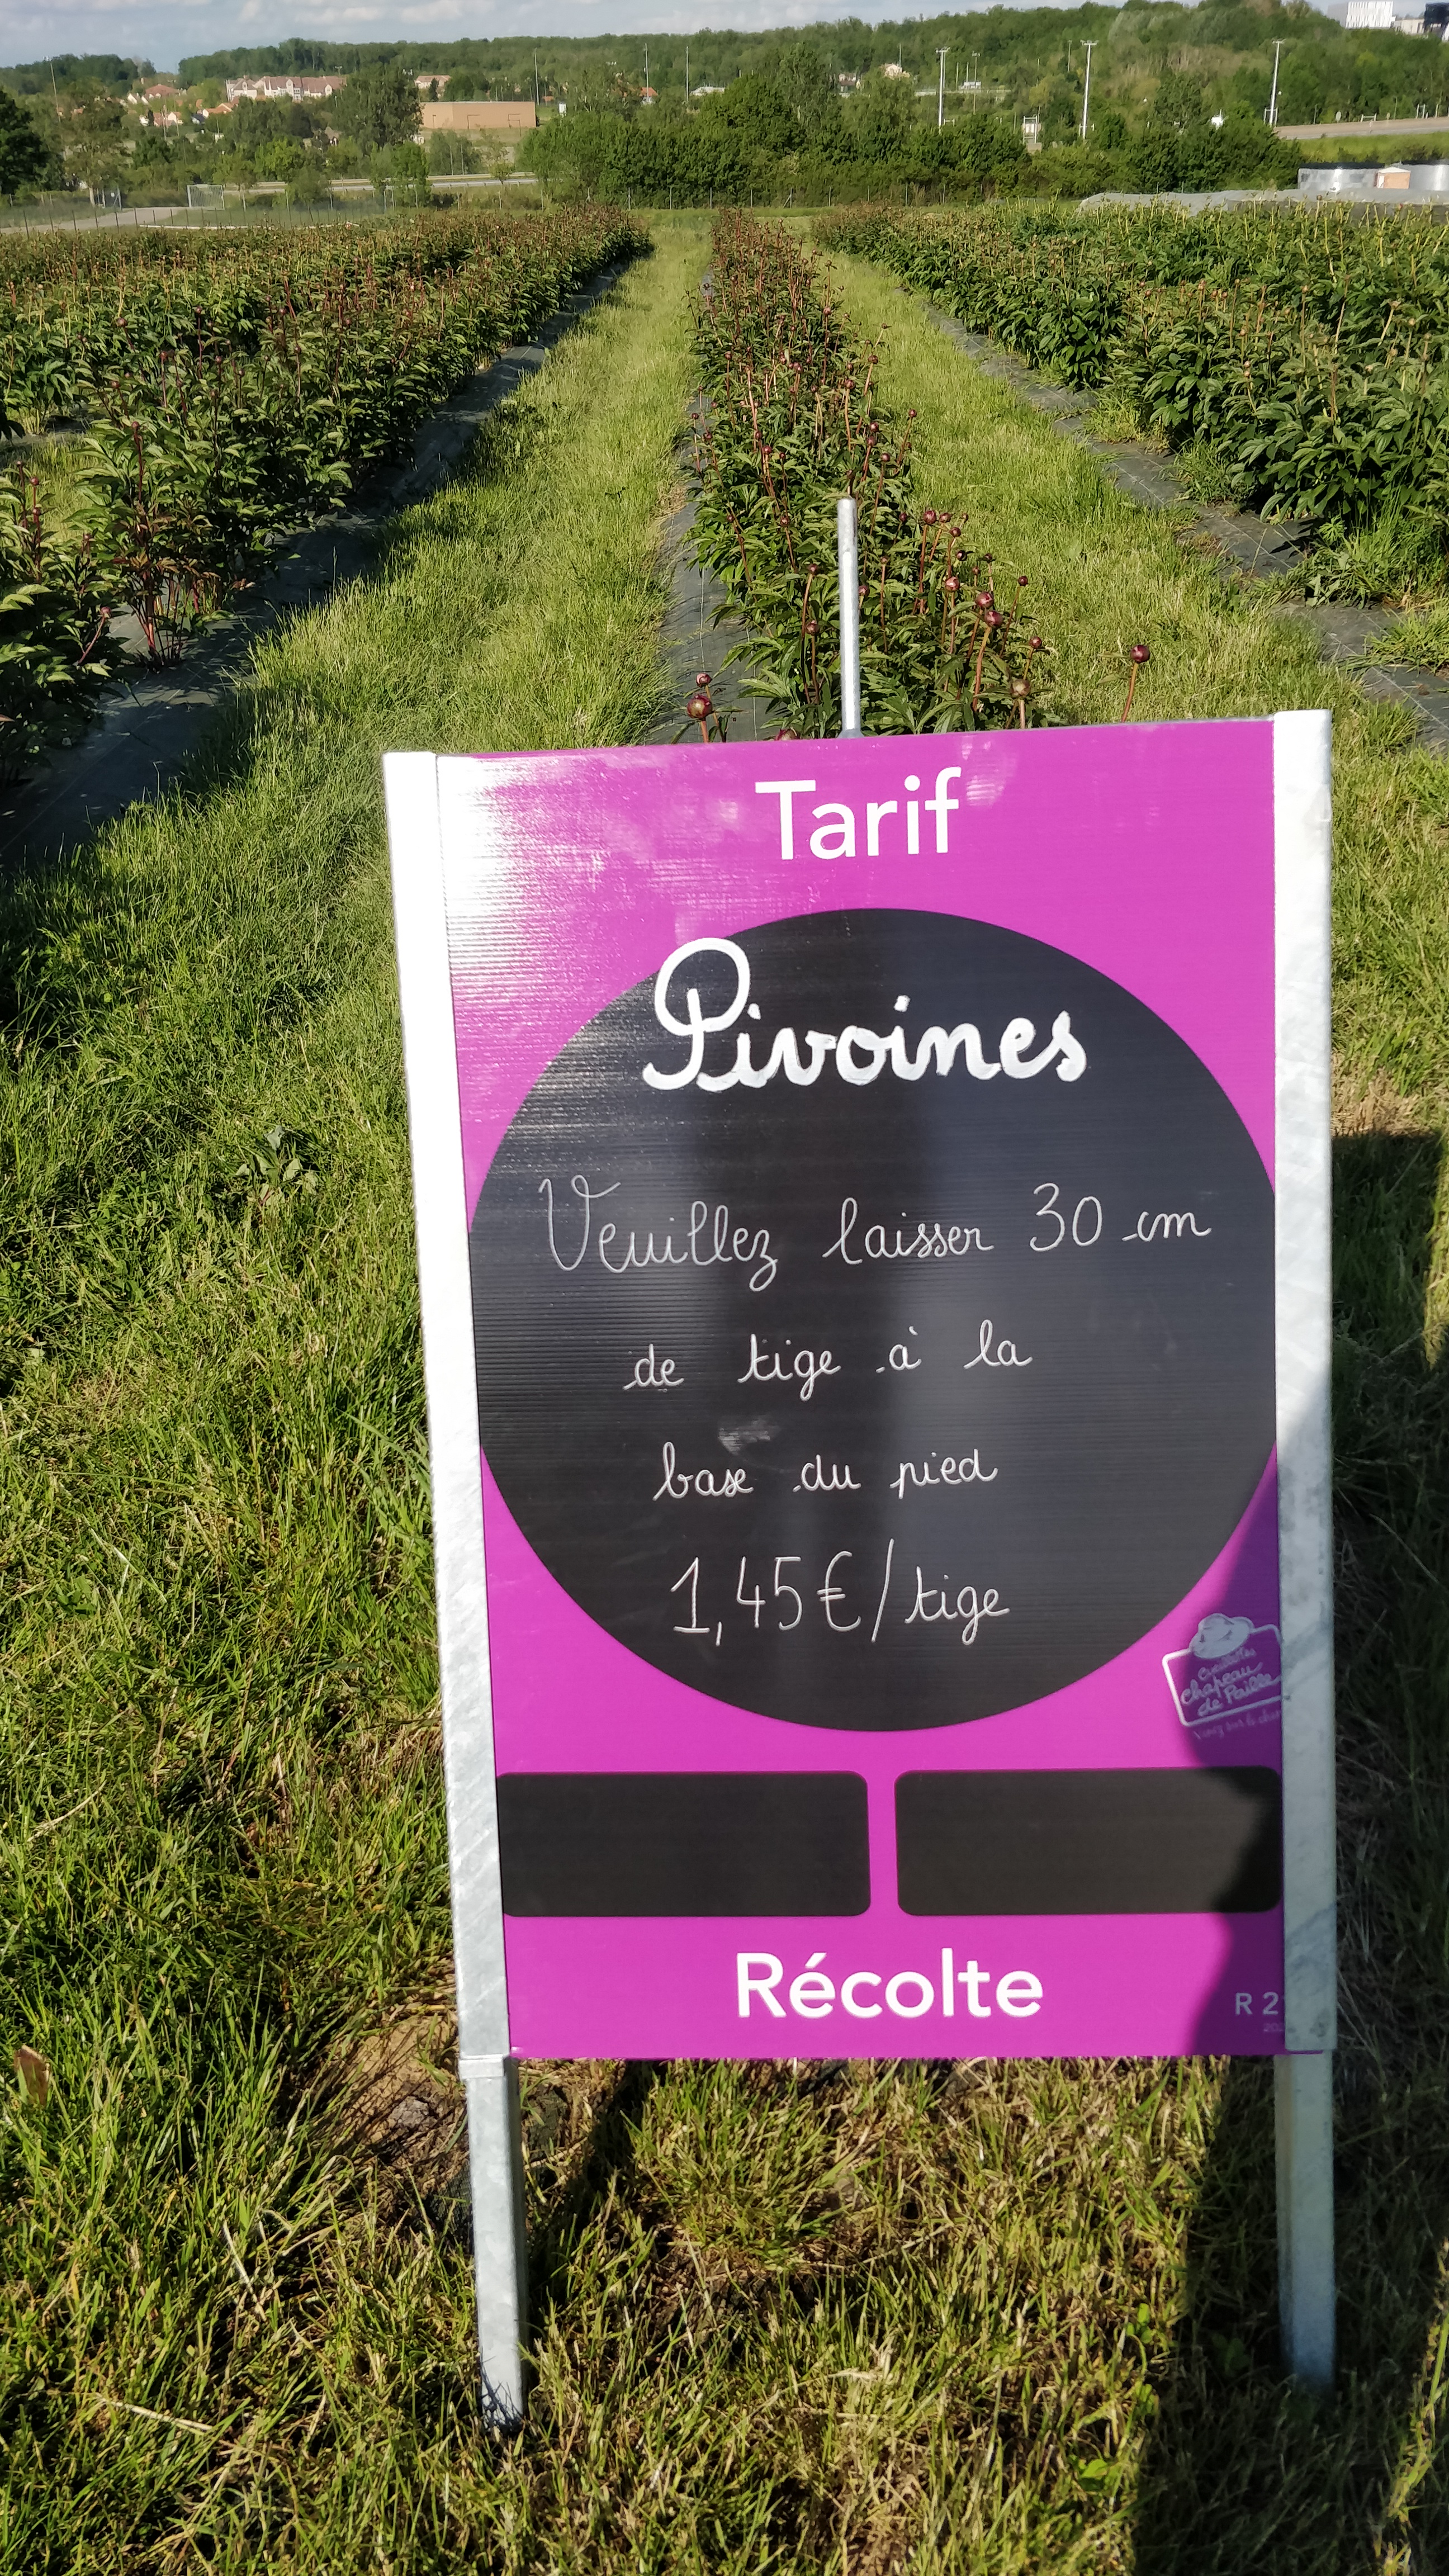 Tarif
Pivoines
Veuillez laisser 30 cm
de tige à la
base du pied
1,45€/tige
Cueillettes
Chapeau
de Paille
Récolte
R 2